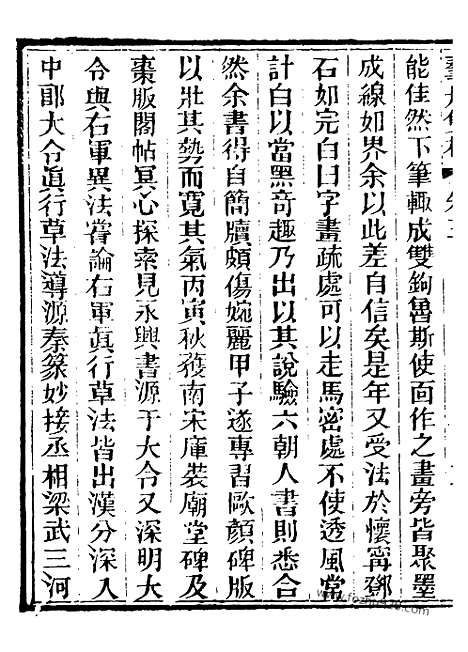 能佳然下筆輒成雙鉤魯斯使面作之畫旁皆聚墨
成線如界余以此差自信矣是年又受法於懷甯鄧
石如完白曰字畫疏處可以走馬密處不使透風當
計白以當黑奇趣乃出以其說驗六朝人書則悉合
然余書得自簡牘頗傷婉麗甲子遂專習歐顏碑版
以壯其勢而寬其氣丙寅秋獲南宋庫裝廟堂碑及
棗版閣帖冥心探索見永興書源于大令又深明大
令與右軍異法嘗論右軍眞行草法皆出漢分深入
中郎大令眞行草法導源秦篆妙接丞相梁武三河